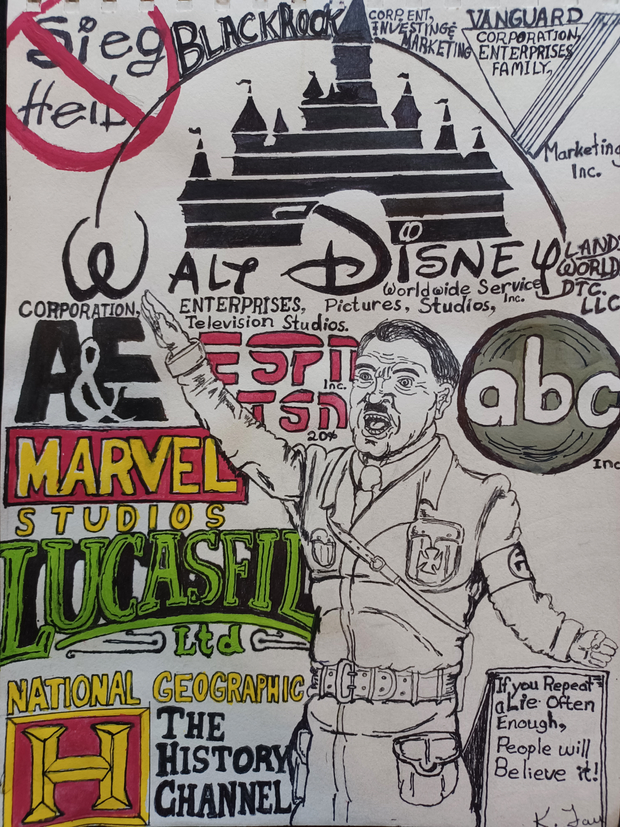 Sieg
Heil
BLACKROCK
CORP. ENT,
INVESTING &
MARKETING
VANGUARD
CORPORATION,
ENTERPRISES
FAMILY,
Marketing
Inc.
WALT DISNEY
LANDS
WORLD
DTC.
LLC
Worldwide Service
Inc.
CORPORATION, ENTERPRISES, Pictures, Studios,
Television Studios.
A&E
ESPN
Inc.
TSN
20%
abc
Inc
MARVEL
STUDIOS
LUCASFIL
Ltd
NATIONAL GEOGRAPHIC
H
THE
HISTORY
CHANNEL
If you Repeat
a Lie Often
Enough,
People will
Believe it!
K.